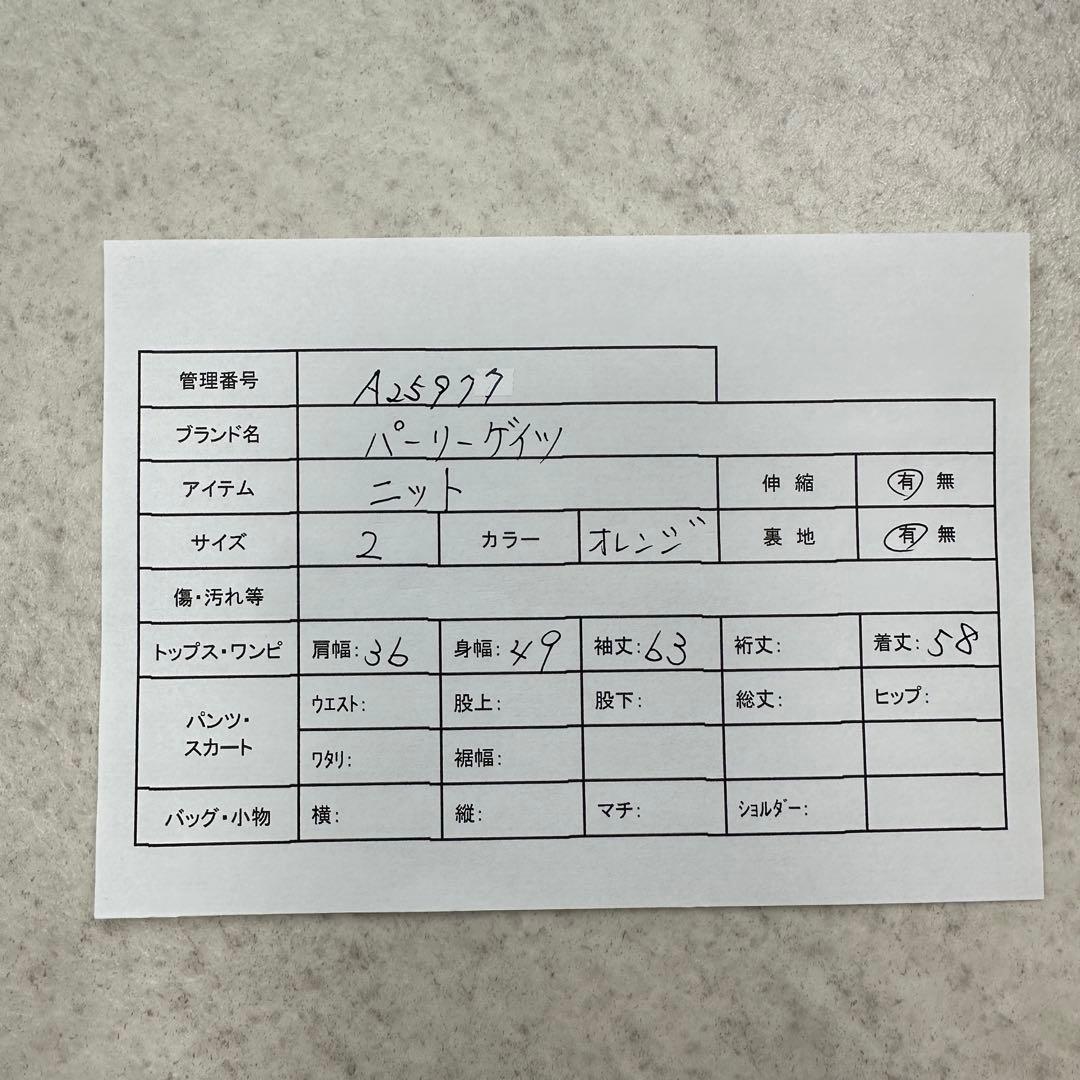 管理番号 A25977
ブランド名 パーリーゲイツ
アイテム ニット 伸縮 有 無
サイズ 2 カラー オレンジ 裏地 有 無
傷・汚れ等
トップス・ワンピ 肩幅:36 身幅:49 袖丈:63 裄丈: 着丈:58
パンツ・スカート ウエスト: 股上: 股下: 総丈: ヒップ:
ワタリ: 裾幅:
バッグ・小物 横: 縦: マチ: ショルダー: